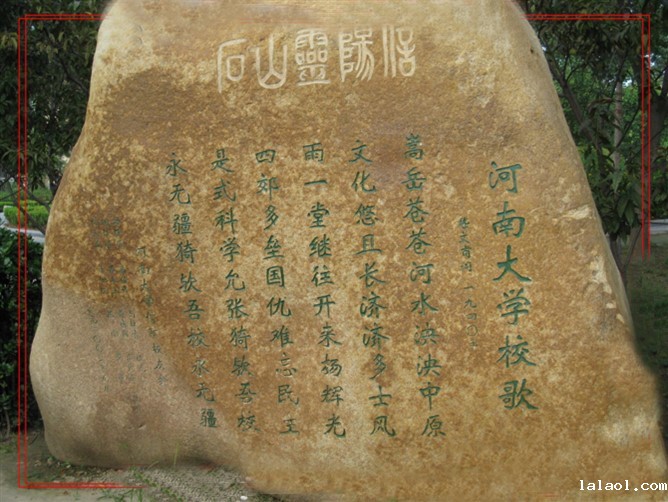 信陽靈山石
河南大学校歌
嵇文甫词 一九四
嵩岳苍苍河水泱泱中原
文化悠且长济济多士风
雨一堂继往开来扬辉光
四郊多垒国仇难忘民主
是式科学允张猗欤吾校
永无疆猗欤吾校永无疆
lalaol.com